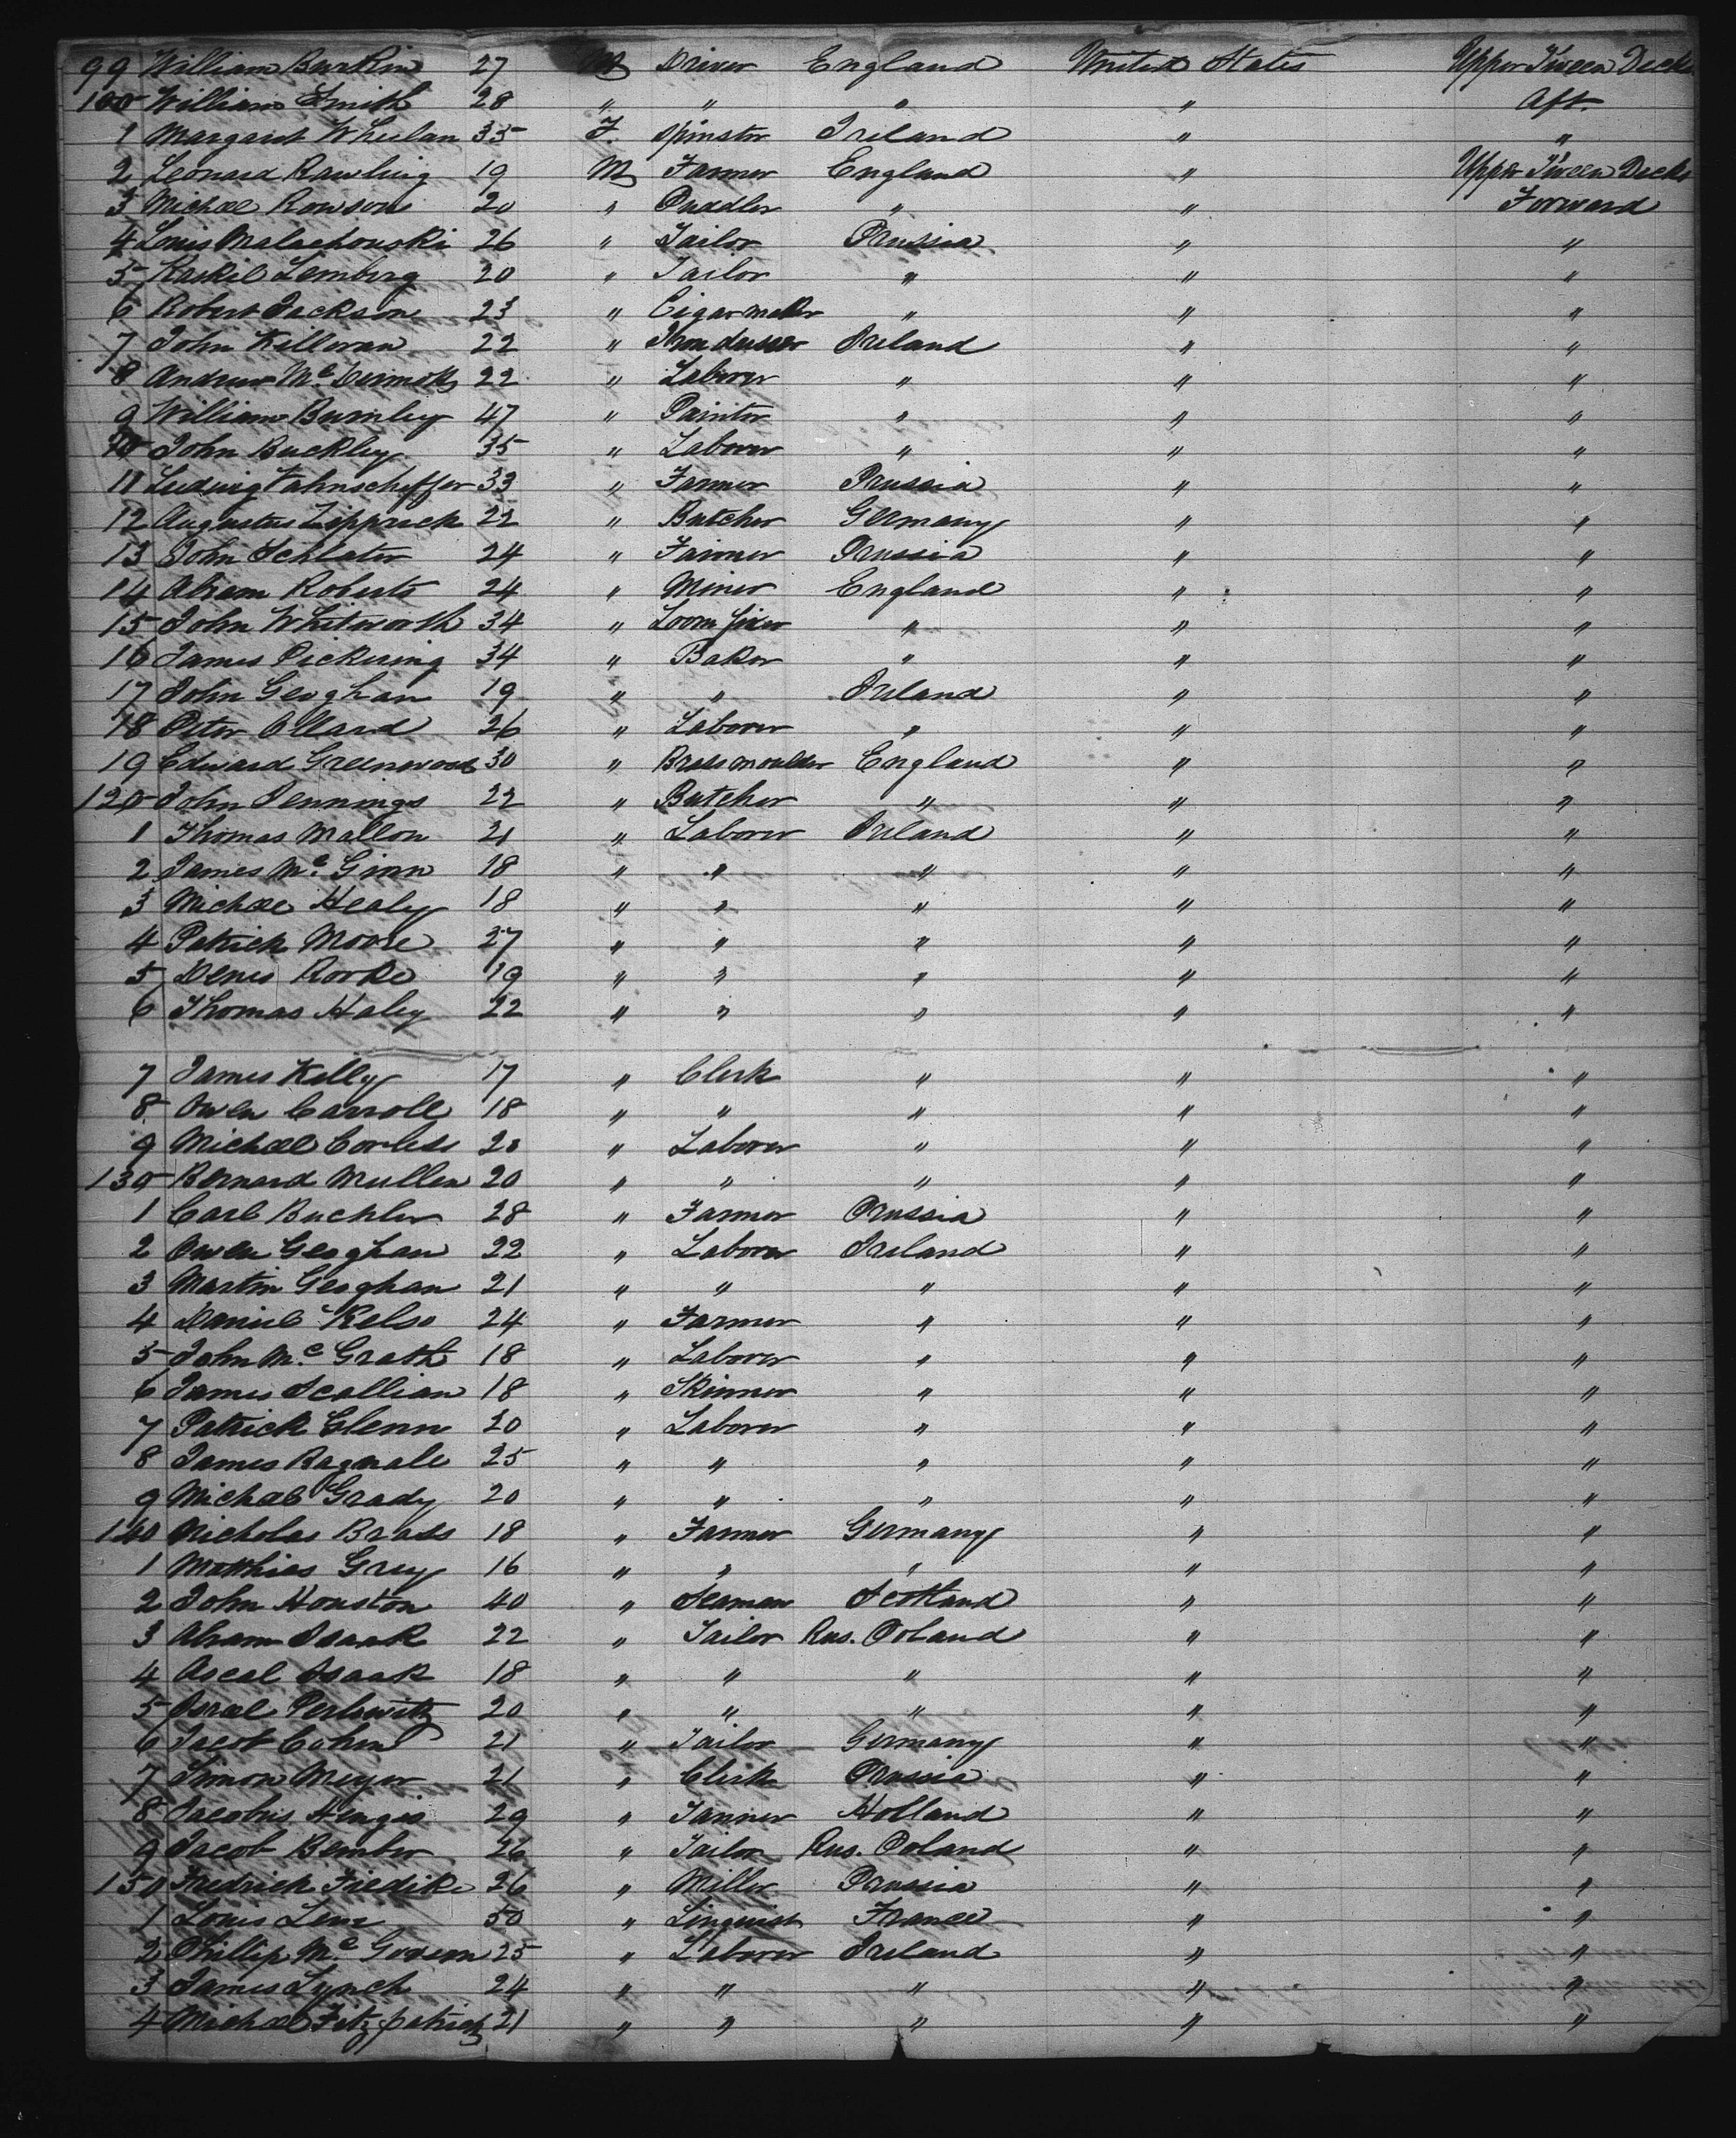 99 William Burkin 27 M Driver England United States Upper Tween Decks
100 William Smith 28 " " " " Aft.
1 Margaret Wheelan 35 F. Spinster Ireland " "
2 Leonard Rawling 19 M Farmer England " Upper Tween Decks
3 Michael Rowson 20 " Puddler " " Forward
4 Louis Malachouski 26 " Tailor Prussia " "
5 Kaskil Lemberg 20 " Tailor " " "
6 Robert Jackson 23 " Cigar maker " " "
7 John Killeran 22 " Ireland " "
8 Andrew Mc Dermott 22 " Laborer " " "
9 William Burnley 47 " Painter " " "
10 John Buckley 35 " Laborer " " "
11 Ludwig Fahnscheffer 33 " Farmer Prussia " "
12 Augustus Zipprick 22 " Butcher Germany " "
13 John Schlater 24 " Farmer Prussia " "
14 Abram Roberts 24 " Miner England " "
15 John Whitworth 34 " Loom fixer " " "
16 James Pickering 34 " Baker " " "
17 John Geoghan 19 " " Ireland " "
18 Peter Ollard 26 " Laborer " " "
19 Edward Greenwood 30 " Brass moulder England " "
120 John Jennings 22 " Butcher " " "
1 Thomas Mallon 21 " Laborer Ireland " "
2 James Mc Ginn 18 " " " " "
3 Michael Healy 18 " " " " "
4 Patrick Moore 27 " " " " "
5 Denis Rorke 19 " " " " "
6 Thomas Haley 22 " " " " "
7 James Kelly 17 " Clerk " " "
8 Owen Carroll 18 " " " " "
9 Michael Corless 20 " Laborer " " "
130 Bernard Mullen 20 " " " " "
1 Carl Buchler 28 " Farmer Prussia " "
2 Owen Geoghan 22 " Laborer Ireland " "
3 Martin Geoghan 21 " " " " "
4 Daniel Kelso 24 " Farmer " " "
5 John Mc Grath 18 " Laborer " " "
6 James Scallian 18 " Skinner " " "
7 Patrick Glenn 20 " Laborer " " "
8 James Ragnale 25 " " " " "
9 Michael Grady 20 " " " " "
140 Nicholas Brass 18 " Farmer Germany " "
1 Matthias Grey 16 " " " " "
2 John Houston 40 " Seaman Scotland " "
3 Abram Isaak 22 " Tailor Rus. Poland " "
4 Ascal Isaak 18 " " " " "
5 Israel Perlowitz 20 " " " " "
6 Jacob Cohen 21 " Tailor Germany " "
7 Simon Meyer 21 " Clerk Prussia " "
8 Jacobus Hengis 29 " Tanner Holland " "
9 Jacob Bember 26 " Tailor Rus. Poland " "
150 Fredrick Fredike 26 " Miller Prussia " "
1 Louis Lenz 50 " Linguist France " "
2 Phillip Mc Govern 25 " Laborer Ireland " "
3 James Lynch 24 " " " " "
4 Michael Fitzpatrick 21 " " " " "